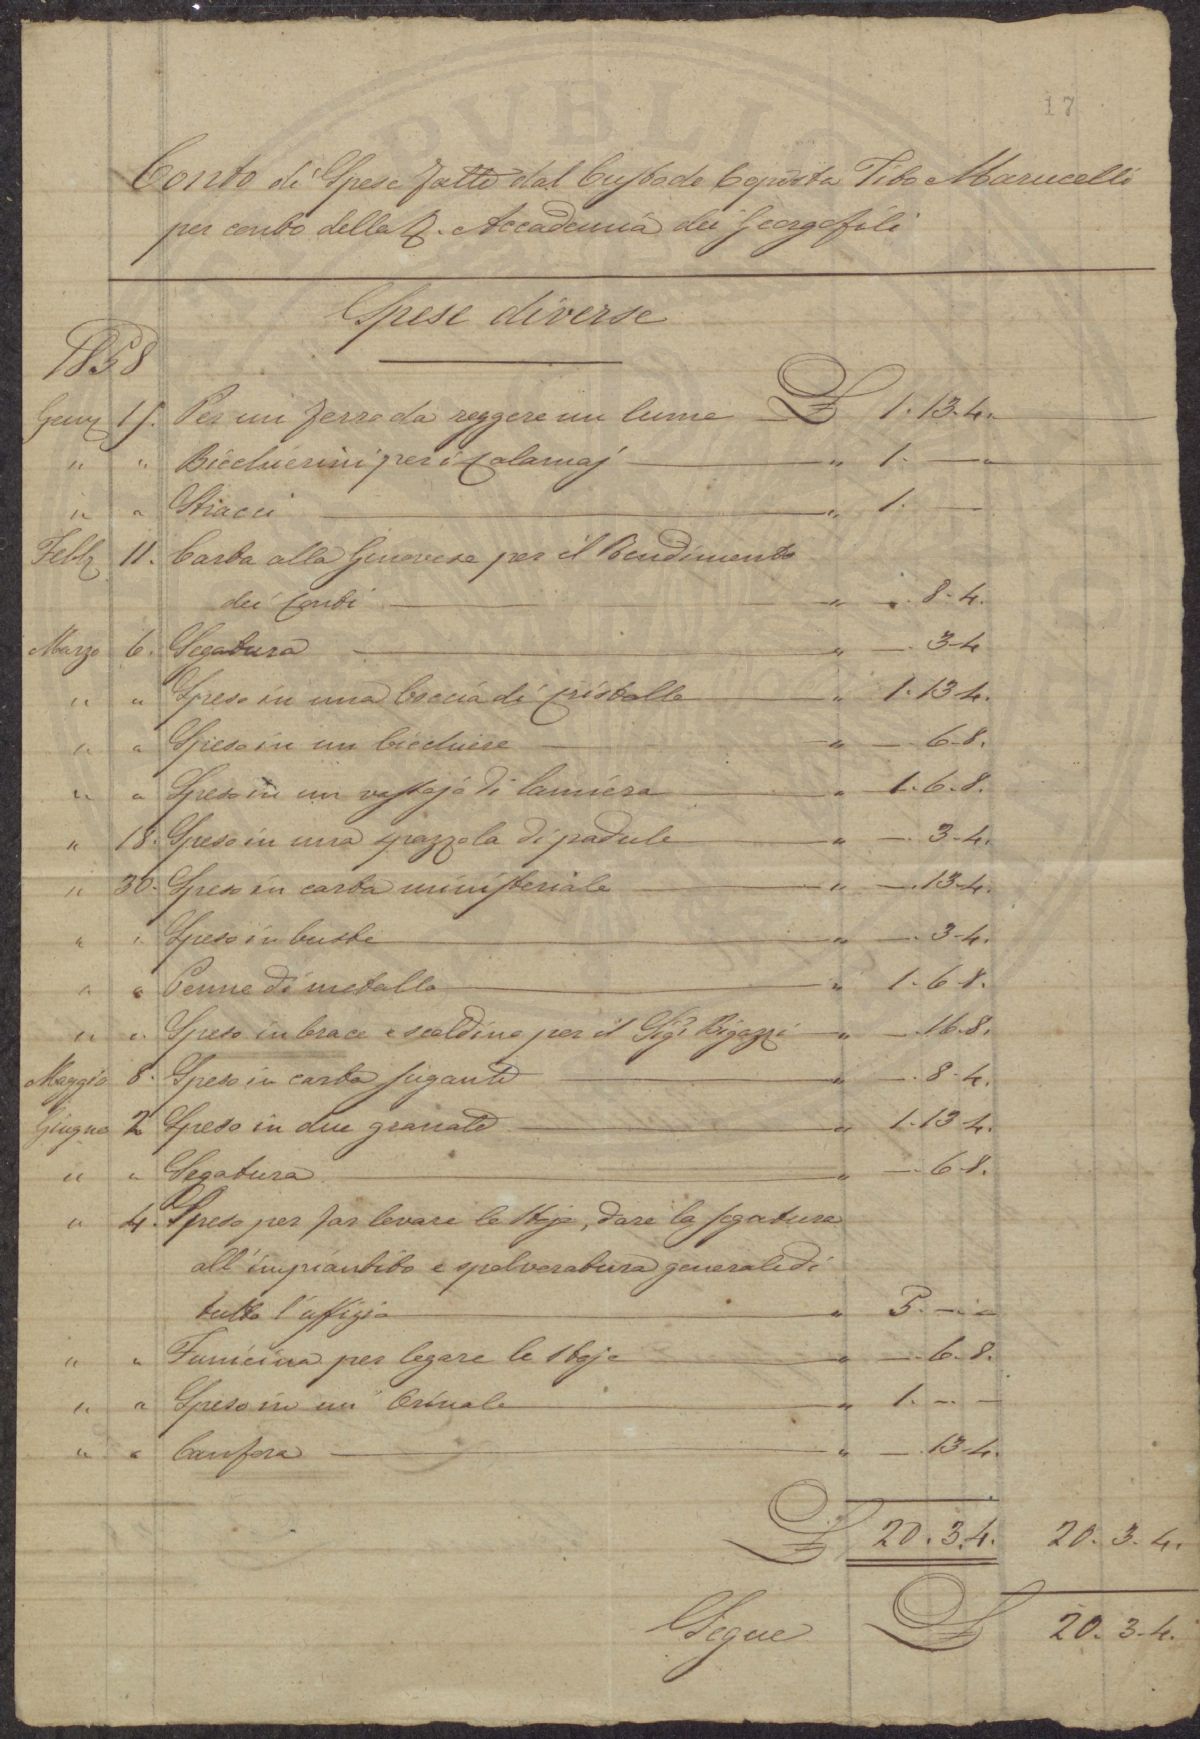 17
Conto di Spese fatte dal Custode Copista Tito Marucelli
per conto della R. Accademia dei Georgofili
Spese diverse
1858
Genn 15. Per un ferro da reggere un lume £ 1. 13. 4.
" " Bicchierini per i Calamaj " 1. — "
" " Stiacci " 1. —
Febb 11. Carta alla Genovese per il Rendimento
dei Conti " —. 8. 4.
Marzo 6. Segatura " —. 3. 4
" " Speso in una boccia di Cristallo " 1. 13. 4.
" " Speso in un bicchiere " —. 6. 8.
" " Speso in un vassojo di lamiera " 1. 6. 8.
" 18. Speso in una spazzola di padule " —. 3. 4.
" 30. Speso in carta ministeriale " —. 13. 4.
" " Speso in buste " —. 3. 4.
" " Penne di metallo " 1. 6. 8.
" " Speso in brace e scaldino per il Sigr Bigazzi " —. 16. 8.
Maggio 8. Speso in carta sugante " —. 8. 4.
Giugno 2 Speso in due granate " 1. 13. 4.
" " Segatura " —. 6. 8.
" 4. Speso per far levare le stoje, dare la segatura
all'impiantito e spolveratura generale di
tutto l'uffizio " 5. — —
" " Funicina per legare le stoje " —. 6. 8.
" " Speso in un Orinale " 1. — —
" " Canfora " —. 13. 4.
£ 20. 3. 4. 20. 3. 4.
Segue £ 20. 3. 4.